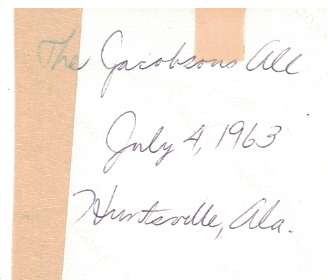 The Jacobsons All
July 4, 1963
Huntsville, Ala.